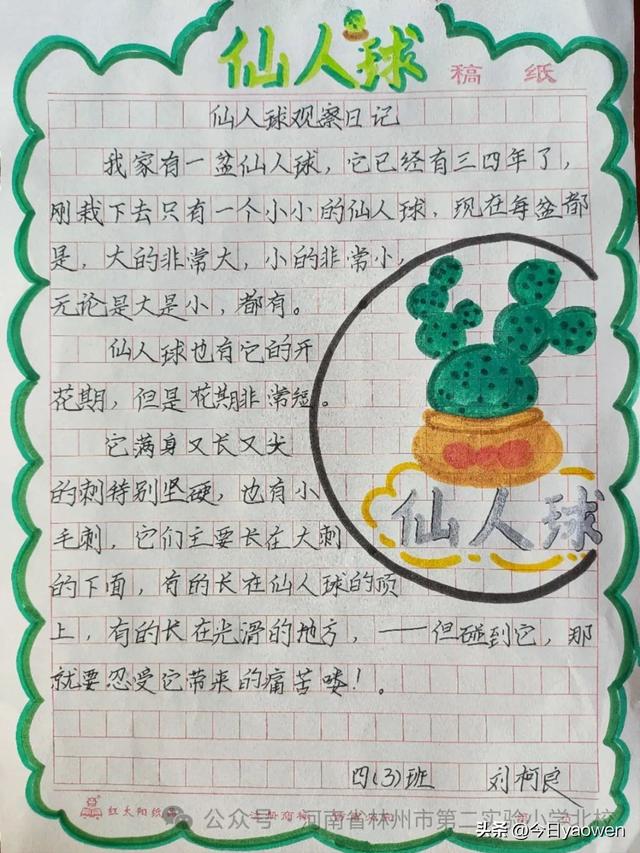 仙人球
稿纸
仙人球观察日记
我家有一盆仙人球，它已经有三四年了，
刚栽下去只有一个小小的仙人球，现在每盆都
是，大的非常大，小的非常小，
无论是大是小，都有。
仙人球也有它的开
花期，但是花期非常短。
它满身又长又尖
的刺特别坚硬，也有小
毛刺，它们主要长在大刺
的下面，有的长在仙人球的顶
上，有的长在光滑的地方，——但碰到它，那
就要忍受它带来的痛苦喽！。
仙人球
四(3)班 刘柯良
红太阳纸
公众号 河南省林州市第二实验小学北校
头条@今日yaowen